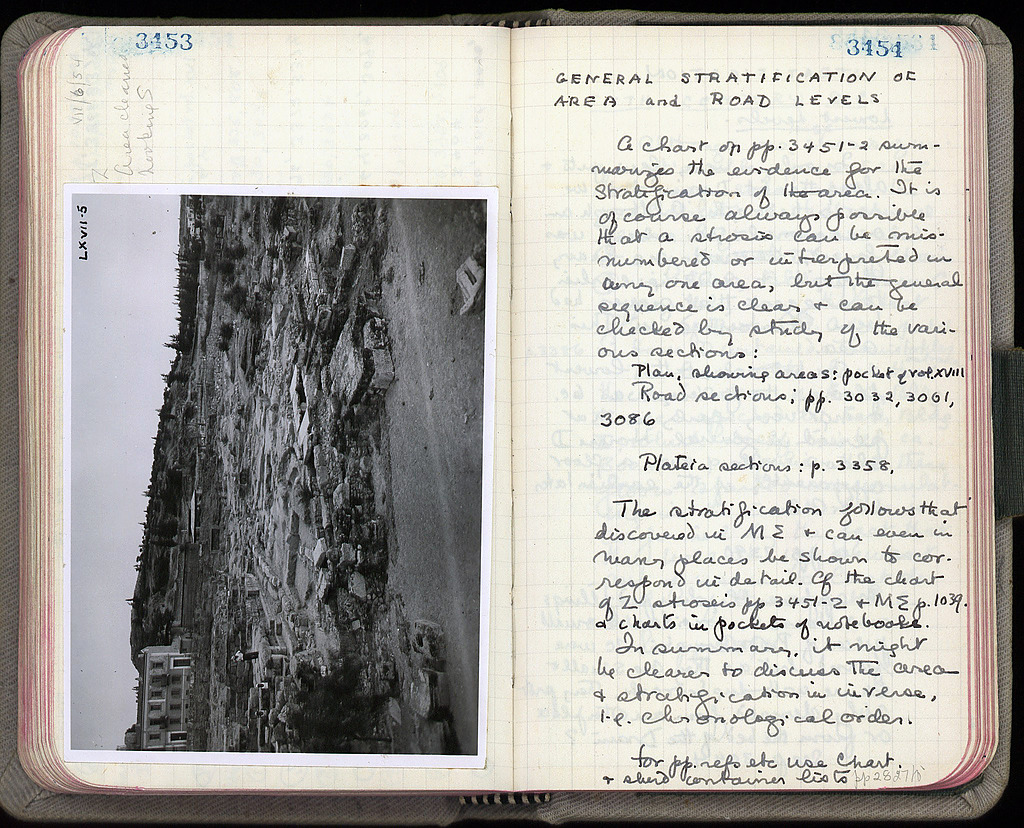 3453
VII/6/54
Z
Area cleaned
Looking S
LXVII-5
3454
GENERAL STRATIFICATION OF
AREA and ROAD LEVELS
A chart on pp. 3451-2 sum-
marizes the evidence for the
stratification of the area. It is
of course always possible
that a strosis can be mis-
numbered or interpreted in
any one area, but the general
sequence is clear + can be
checked by study of the vari-
ous sections:
Plan, showing areas: pocket of vol. XVIII
Road sections; pp. 3032, 3061,
3086
Plateia sections: p. 3358,
The stratification follows that
discovered in ΜΣ + can even in
many places be shown to cor-
respond in detail. Cf the chart
of Z strosis pp 3451-2 + ΜΣ p. 1039.
+ charts in pockets of notebooks.
In summary, it might
be clearer to discuss the area
+ stratification in inverse,
i.e. chronological order.
for pp. refs etc use Chart.
+ sherd container lists pp 2827